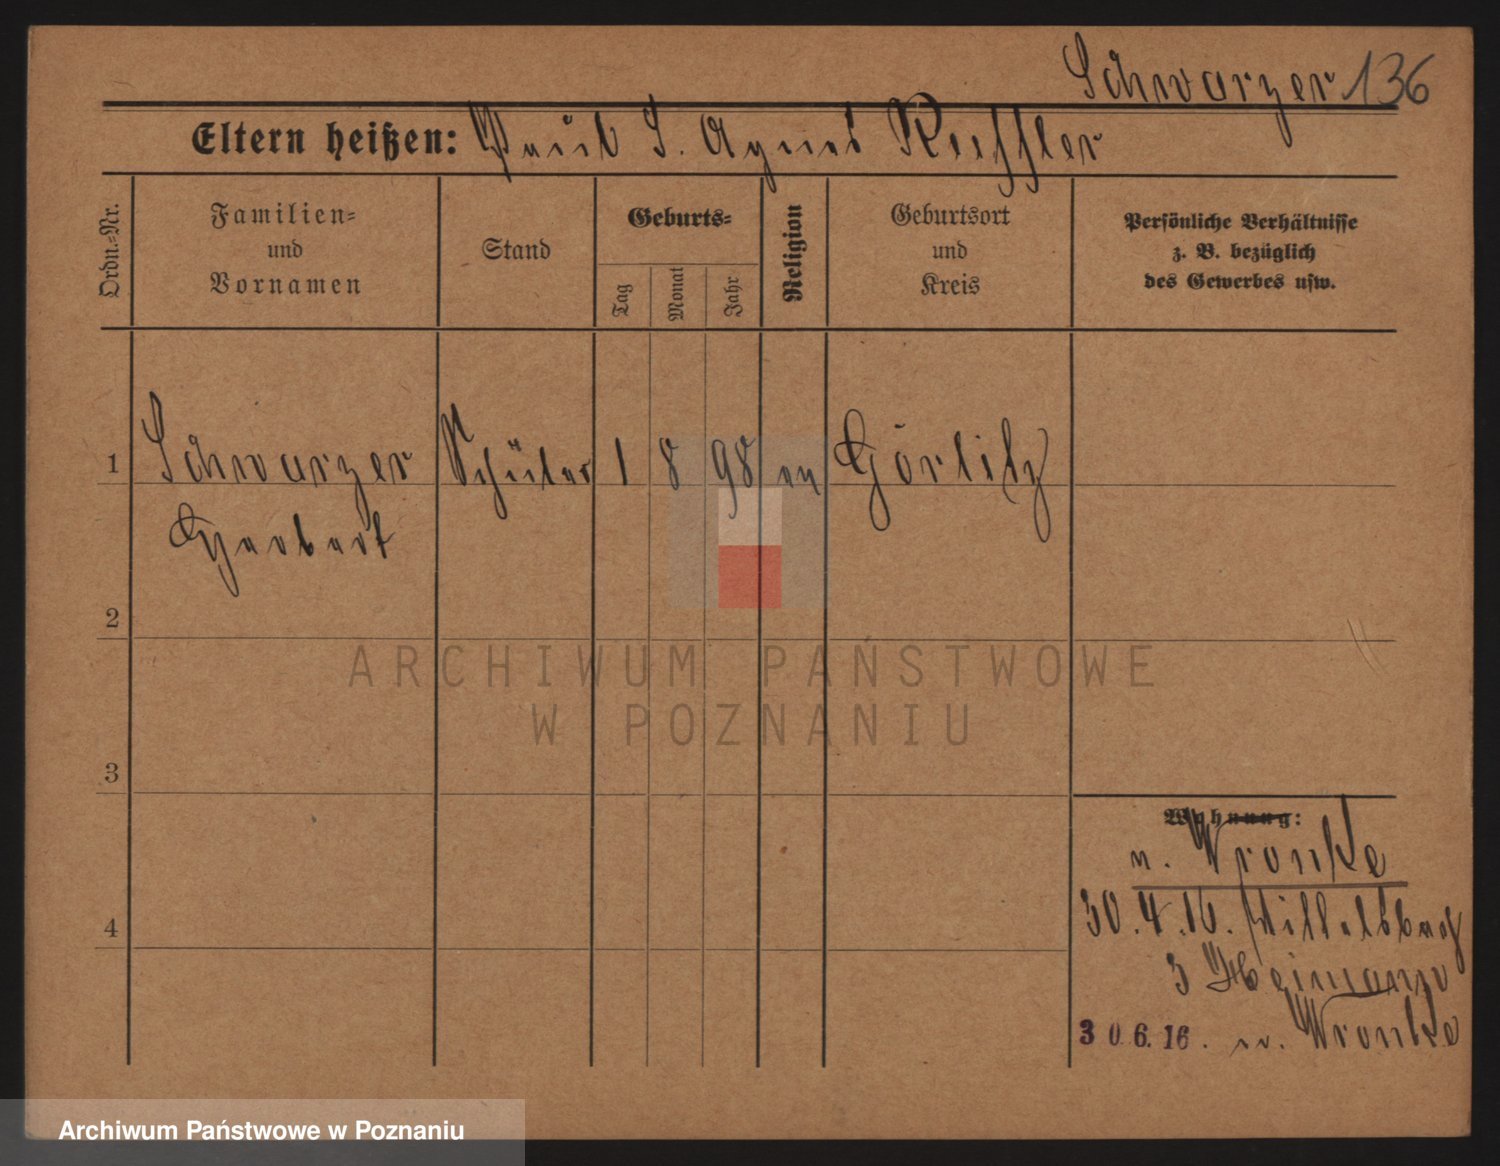 Schwarzer 136
Eltern heißen: Paul S. Agnes
Ordn.=Nr.
Familien=
und
Vornamen
Stand
Geburts=
Tag
Monat
Jahr
Religion
Geburtsort
und
Kreis
Persönliche Verhältnisse
z. B. bezüglich
des Gewerbes usw.
1 Schwarzer Schüler 1 8 98 ev Görlitz
Herbert
2
3
4
Wohnung:
n. Wronke
30.4.16.
3 Heimann
30.6.16. n. Wronke
ARCHIWUM PAŃSTWOWE
W POZNANIU
Archiwum Państwowe w Poznaniu